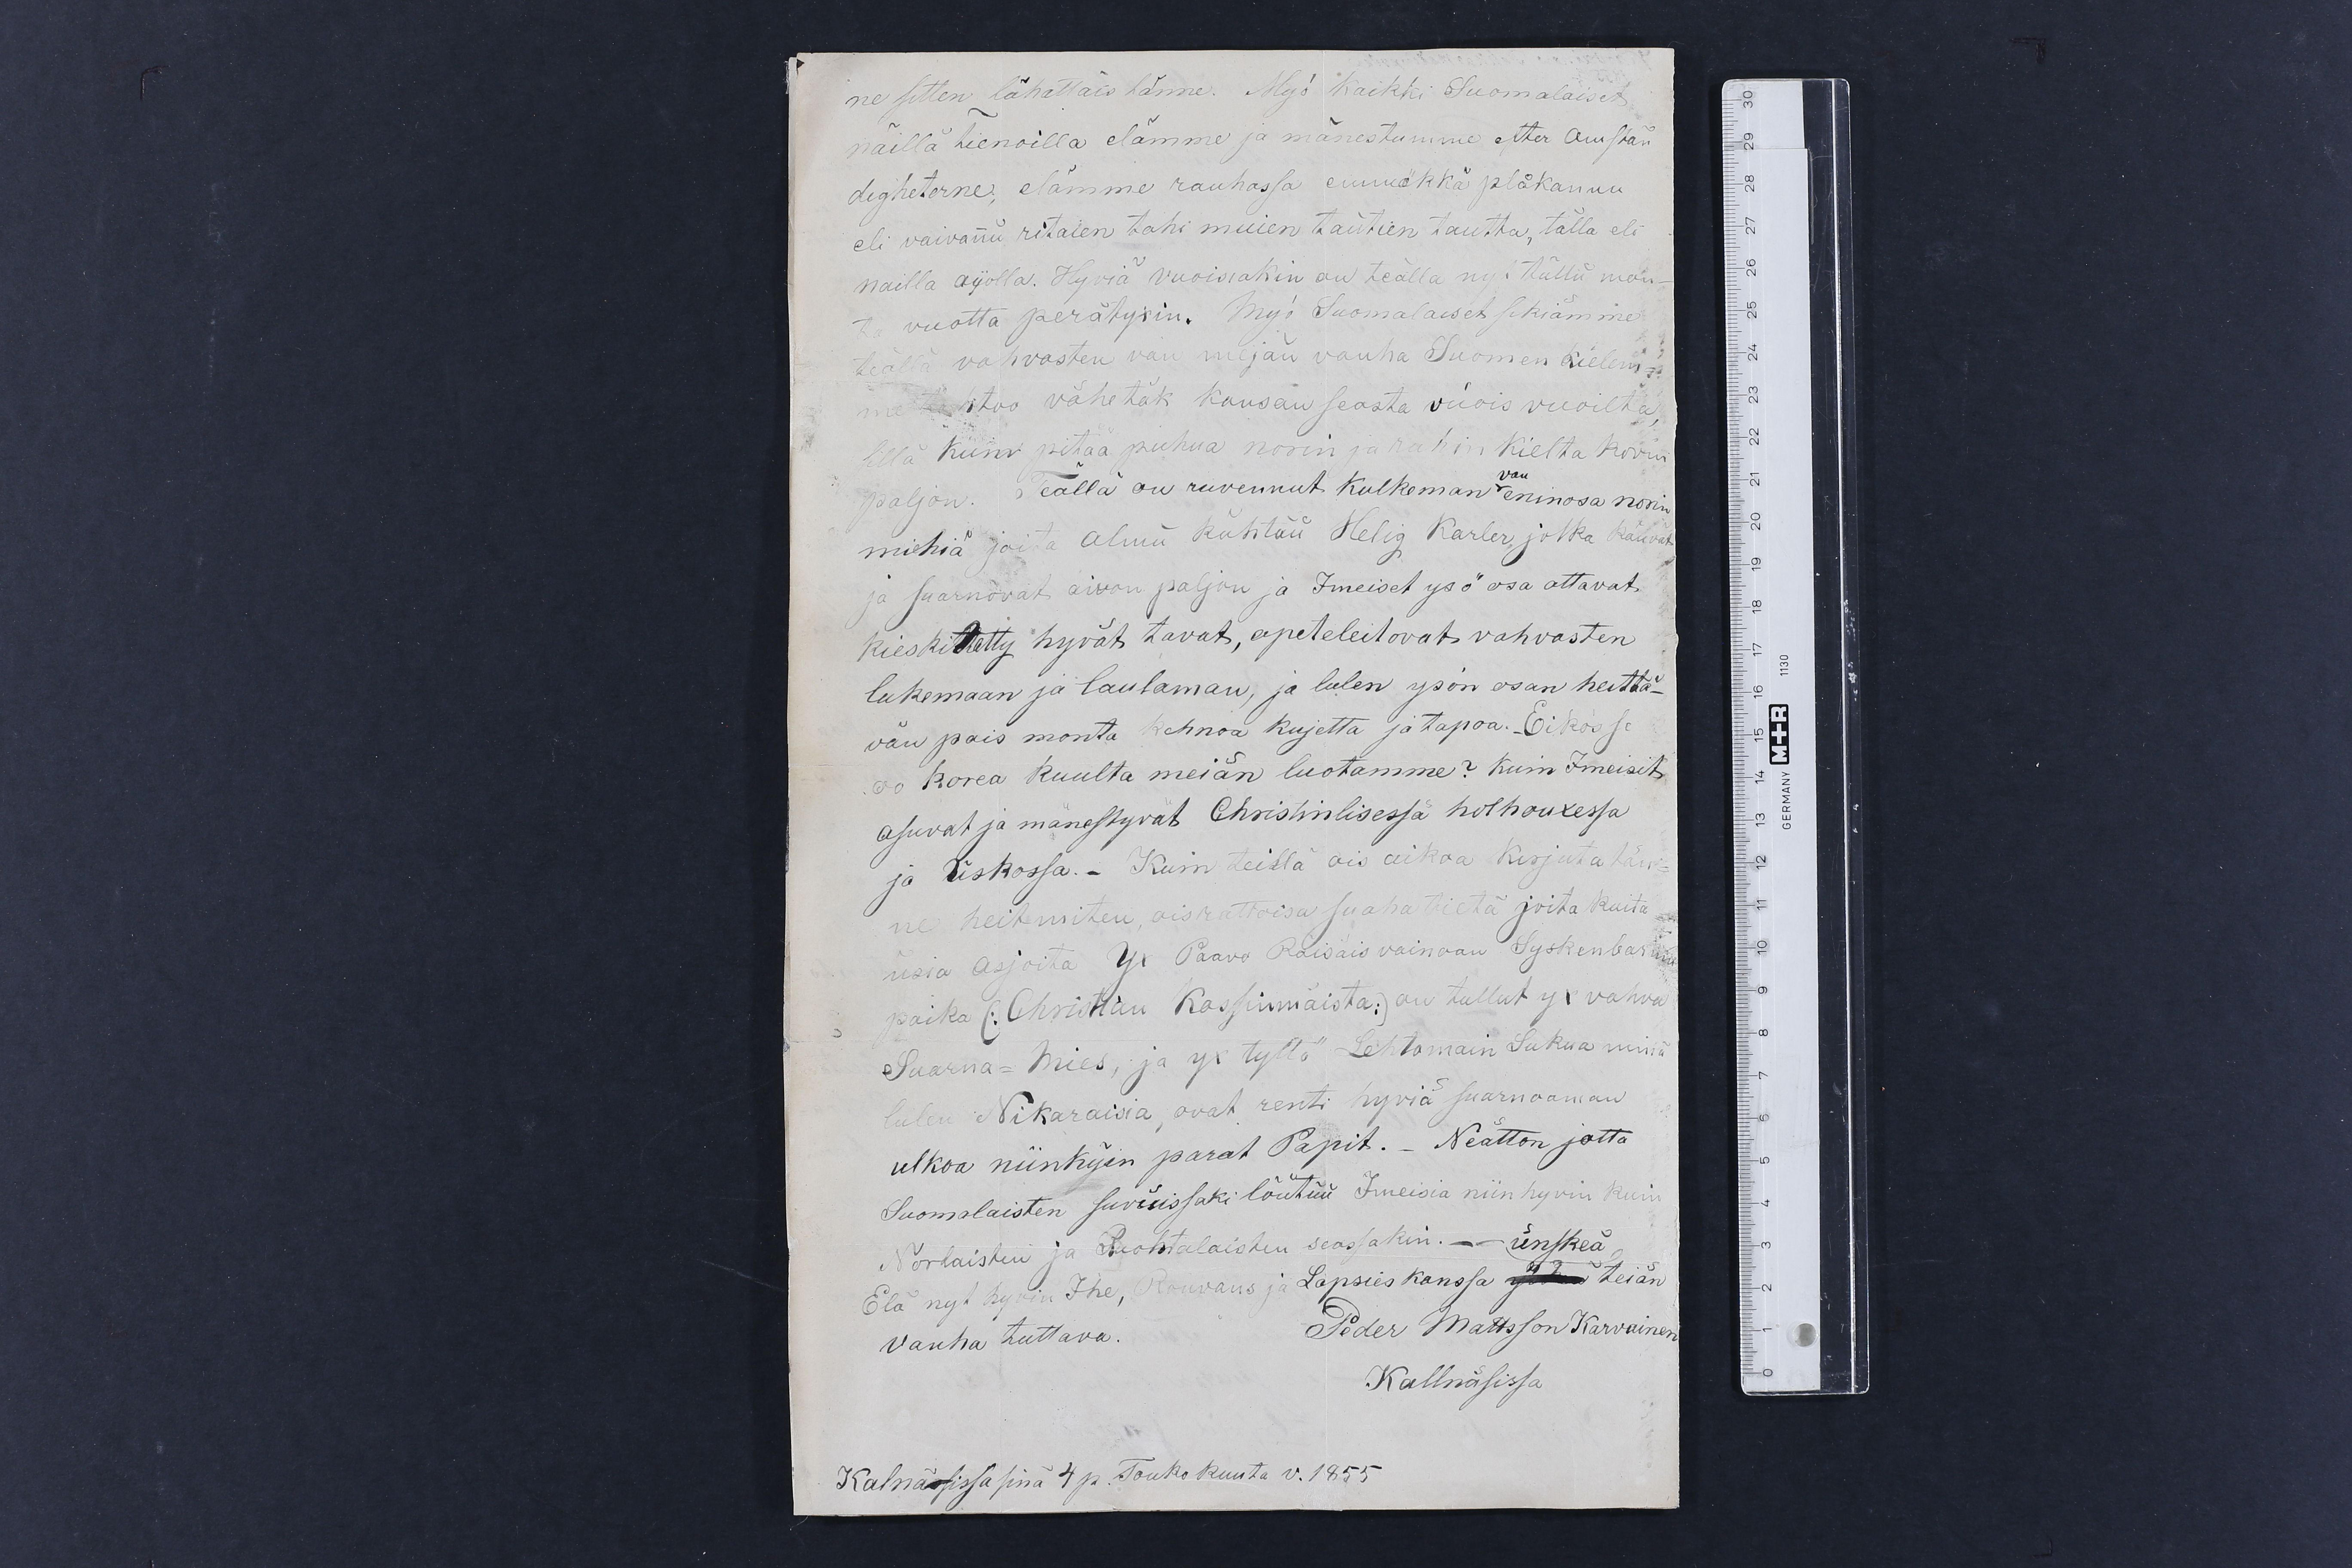 ne sitten lähättäis tänne. Myö kaikki Suomalaiset
näillä tienoilla elämme ja mänestumme etter Omstän
digheterne, elämme rauhassa emmäkkä plåkannu
eli vaivannu ritaien tahi muien tautien tautta, tällä eli
näillä ajolla. Hyviä vuosiakin on teällä nyt tullu mon-
ta vuotta perätysin. Myö Suomalaiset sekiämme
teällä vahvasten van mejän vanha Suomen kielem=
me too vähetäk kansan seasta vuois vuoilta,
sillä kuin pitää puhua norin ja kielta kovin
paljon. Teällä on ruvennut kulkeman van eninosa norin
miehiä joita almu kuhtuu Helig Karler, jotka käuvät
ja suarnovat aivon paljon ja Imeiset ysö osa ottavat
kieskitetty hyvät tavat, opeteleitovat vahvasten
lukemaan ja laulaman, ja lulen ysön osan heittä-
vän pois monta kehnoa kujetta ja tapoa. - Eikös se
oo korea kuulta meiän luotamme? kuin Imeisit
asuvat ja mänestyvät Christinlisessä holhouxessa
ja Uskossa. - Kuin teillä ois aikoa kirjuta tän=
ne heitmiten, ois rattoisa suaha tietä joita kuita
uusia asjoita Yx Paavo Räisäis vainoan Syskenbarnin
poika (: Christian Kassinmäista:) on tullut yx vahva
Suarna=Mies, ja yx tyttö Lehtomain Sukua minä
lulen Nikaraisia, ovat renti hyviä suarnoaman
ulkoa niinkuin parat Papit. - Neätton jotta
Suomalaisten suvuissaki löutuu Imeisia niin hyvin kuin
Norlaisten ja Ruohtalaisten seassakin. - - ünskeä
Elä nyt hyvin Ihe, Rouvans ja Lapsies kanssa teiän
vanha tuttava. Peder Mattsson Karvainen
Kallnäsissa
Kalnäsissa sinä 4 p. Touko kuuta v. 1855
0 1 2 3 4 5 6 7 8 9 10 11 12 13 14 15 16 17 18 19 20 21 22 23 24 25 26 27 28 29 30
GERMANY M+R 1130